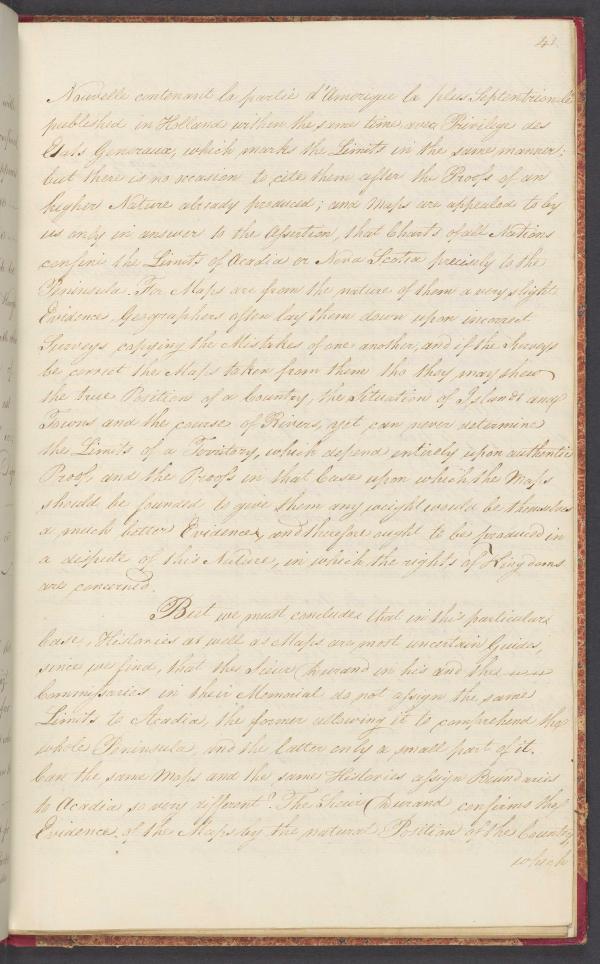 41
Nouvelle contenant la partie d'Amerique la plus Septentrionale
published in Holland within the same time avec Privilege des
Etats Generaux, which marks the Limits in the same manner;
but there is no occasion to cite them after the Proofs of an
higher Nature already produced; and Maps are appealed to by
us only in answer to the Assertion, that Charts of all Nations
confine the Limits of Acadia or Nova Scotia precisely to the
Peninsula. For Maps are from the nature of them a very slight
Evidence, Geographers often lay them down upon incorrect
Surveys copying the Mistakes of one another, and if the Surveys
be correct the Maps taken from them tho they may shew
the true Position of a Country, the Situation of Islands and
Towns and the course of Rivers, yet can never determine
the Limits of a Territory, which depend entirely upon authentic
Proof, and the Proofs in that Case upon which the Maps
should be founded to give them any weight would be themselves
a much better Evidence, and therefore ought to be produced in
a dispute of this Nature, in which the rights of Kingdoms
are concerned.
But we must conclude that in this particular
Case, Histories as well as Maps are most uncertain Guides,
since we find, that the Sieur Durand in his and the
Commissaries in their Memorial do not assign the same
Limits to Acadia, the former allowing it to comprehend the
whole Peninsula, and the latter only a small part of it.
Can the same Maps and the same Histories assign Boundaries
to Acadia so very different? The Sieur Durand confirms the
Evidence of the Maps by the natural Position of the Country,
which